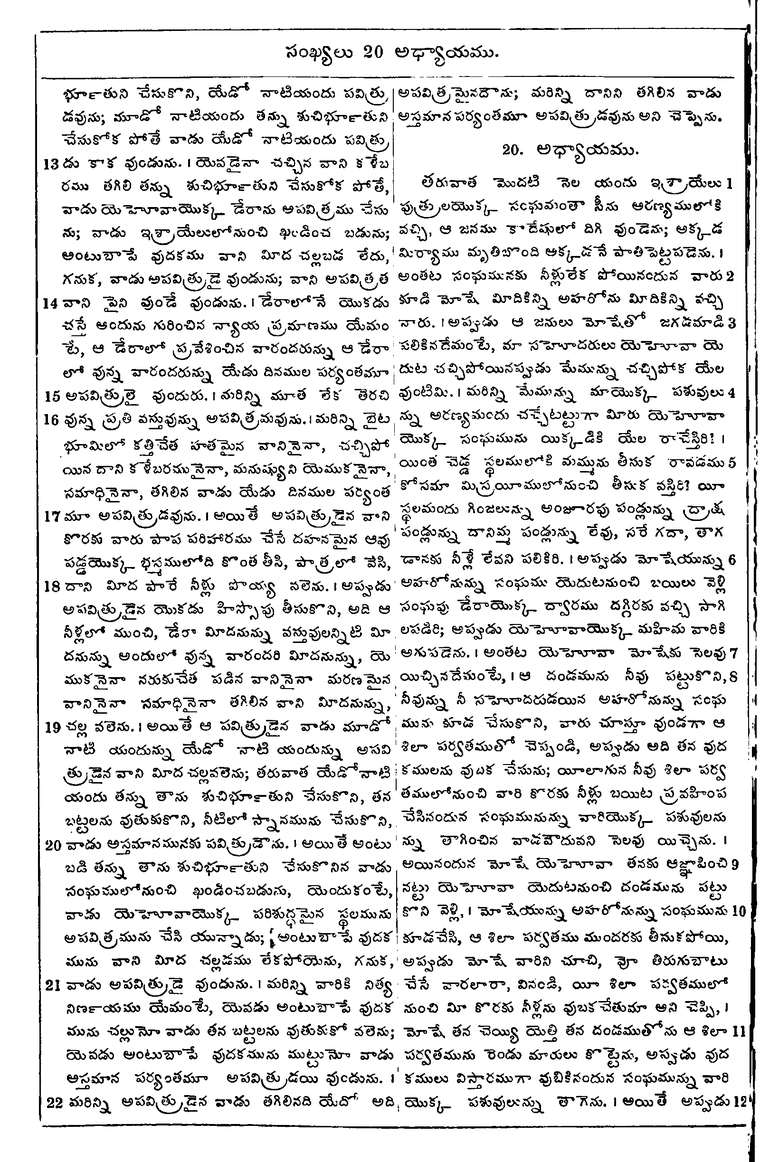 సంఖ్యలు 20 అధ్యాయము.
భూతుని చేసుకొని, యేడో నాటియందు పవిత్రు
డవును; మూడో నాటియందు తన్ను శుచిభూతుని
చేసుకోక పోతే వాడు యేడో నాటియందు పవిత్రు
13 డు కాక వుండును. । యెవడైనా చచ్చిన వాని కళేబ
రము తగిలి తన్ను శుచిభూతుని చేసుకోక పోతే,
వాడు యెహోవాయొక్క డేరాను అపవిత్రము చేసు
ను; వాడు ఇశ్రాయేలులోనుంచి ఖండించ బడును;
అంటుబాపే వుదకము వాని మీద చల్లబడ లేదు,
గనుక, వాడు అపవిత్రుడై వుండును; వాని అపవిత్రత
14 వాని పైని వుండే వుండును. । డేరాలోనే యొకడు
చస్తే అందును గురించిన న్యాయ ప్రమాణము యేమం
టే, ఆ డేరాలో ప్రవేశించిన వారందరున్ను ఆ డేరా
లో వున్న వారందరున్ను యేడు దినముల పర్యంతమూ
15 అపవిత్రులై వుందురు. । మరిన్ని మూత లేక తెరచి
16 వున్న ప్రతి వస్తువున్ను అపవిత్రమవును. । మరిన్ని బైట
భూమిలో కత్తిచేత హతమైన వానినైనా, చచ్చిపో
యిన దాని కళేబరమునైనా, మనుష్యుని యెముకనైనా,
సమాధినైనా, తగిలిన వాడు యేడు దినముల పర్యంత
17 మూ అపవిత్రుడవును. । అయితే అపవిత్రుడైన వాని
కొరకు వారు పాప పరిహారము చేసే దహనమైన ఆవు
పడ్డయొక్క భస్మములోది కొంత తీసి, పాత్రలో వేసి,
18 దాని మీద పారే నీళ్లు పొయ్య వలెను. । అప్పుడు
అపవిత్రుడైన యొకడు హిస్సోపు తీసుకొని, అది ఆ
నీళ్లలో ముంచి, డేరా మీదనున్ను వస్తువులన్నిటి మీ
దనున్ను అందులో వున్న వారందరి మీదనున్ను, యె
ముకనైనా నరుకుచేత పడిన వానినైనా మరణమైన
వానినైనా సమాధినైనా తగిలిన వాని మీదనున్ను,
19 చల్ల వలెను. । అయితే ఆ పవిత్రుడైన వాడు మూడో
నాటి యందున్ను యేడో నాటి యందున్ను అపవి
త్రుడైన వాని మీద చల్లవలెను; తరువాత యేడోనాటి
యందు తన్ను తాను శుచిభూతుని చేసుకొని, తన
బట్టలను వుతుకుకొని, నీటిలో స్నానమును చేసుకొని,
20 వాడు అస్తమానమునకు పవిత్రుడౌను. । అయితే అంటు
బడి తన్ను తాను శుచిభూతుని చేసుకొనిన వాడు
సంఘములోనుంచి ఖండించబడును, యెందుకంటే,
వాడు యెహోవాయొక్క పరిశుద్ధమైన స్థలమును
అపవిత్రమును చేసి యున్నాడు; అంటుబాపే వుదక
మును వాని మీద చల్లడము లేకపోయెను, గనుక,
21 వాడు అపవిత్రుడై వుండును. । మరిన్ని వారికి నిత్య
నిర్ణయము యేమంటే, యెవడు అంటుబాపే వుదక
మును చల్లునో వాడు తన బట్టలను వుతుకుకో వలెను;
యెవడు అంటుబాపే వుదకమును ముట్టునో వాడు
అస్తమాన పర్యంతమూ అపవిత్రుడయి వుండును. ।
22 మరిన్ని అపవిత్రుడైన వాడు తగిలినది యేదో అది
అపవిత్రమైనదౌను; మరిన్ని దానిని తగిలిన వాడు
అస్తమాన పర్యంతమూ అపవిత్రుడవును అని చెప్పెను.
20. అధ్యాయము.
తరువాత మొదటి నెల యందు ఇశ్రాయేలు 1
పుత్రులయొక్క సంఘమంతా సీను అరణ్యములోకి
వచ్చి, ఆ జనము కాదేషులో దిగి వుండెను; అక్కడ
మిర్యాము మృతిబొంది అక్కడనే పాతిపెట్టపడెను. ।
అంతట సంఘమునకు నీళ్లులేక పోయినందున వారు 2
కూడి మోషే మీదికిన్ని అహరోను మీదికిన్ని వచ్చి
నారు. । అప్పుడు ఆ జనులు మోషేతో జగడమాడి 3
పలికినదేమంటే, మా సహోదరులు యెహోవా యె
దుట చచ్చిపోయినప్పుడు మేమున్ను చచ్చిపోక యేల
వుంటిమి. । మరిన్ని మేమున్ను మాయొక్క పశువులు 4
న్ను అరణ్యమందు చచ్చేటట్టుగా మీరు యెహోవా
యొక్క సంఘమును యిక్కడికి యేల రాచేస్తిరి? ।
యింత చెడ్డ స్థలములోకి మమ్మును తీసుక రావడము 5
కోసమా మిస్రయీములోనుంచి తీసుక వస్తిరి? యీ
స్థలమందు గింజలున్ను అంజూరపు పండ్లున్ను ద్రాక్ష
పండ్లున్ను దానిమ్మ పండ్లున్ను లేవు, సరే గదా, తాగ
డానకు నీళ్లే లేవని పలికిరి. । అప్పుడు మోషేయున్ను 6
అహరోనున్ను సంఘము యెదుటనుంచి బయిలు వెళ్లి
సంఘపు డేరాయొక్క ద్వారము దగ్గిరకు వచ్చి సాగి
లపడిరి; అప్పుడు యెహోవాయొక్క మహిమ వారికి
అగుపడెను. । అంతట యెహోవా మోషేకు సెలవు 7
యిచ్చినదేమంటే, । ఆ దండమును నీవు పట్టుకొని, 8
నీవున్ను నీ సహోదరుడయిన అహరోనున్ను సంఘ
మును కూడ చేసుకొని, వారు చూస్తూ వుండగా ఆ
శిలా పర్వతముతో చెప్పండి, అప్పుడు అది తన వుద
కములను వుబక చేసును; యీలాగున నీవు శిలా పర్వ
తములోనుంచి వారి కొరకు నీళ్లు బయిట ప్రవహింప
చేసినందున సంఘమునున్ను వారియొక్క పశువులను
న్ను తాగించిన వాడవౌదువని సెలవు యిచ్చెను. ।
అయినందున మోషే యెహోవా తనకు ఆజ్ఞాపించి 9
నట్టు యెహోవా యెదుటనుంచి దండమును పట్టు
కొని వెళ్లి, । మోషేయున్ను అహరోనున్ను సంఘమును 10
కూడచేసి, ఆ శిలా పర్వతము ముందరకు తీసుకపోయి,
అప్పుడు మోషే వారిని చూచి, వో తిరుగుబాటు
చేసే వారలారా, వినండి, యీ శిలా పర్వతములో
నుంచి మీ కొరకు నీళ్లను వుబకచేతుమా అని చెప్పి, ।
మోషే తన చెయ్యి యెత్తి తన దండముతోను ఆ శిలా 11
పర్వతమును రెండు మారులు కొట్టెను, అప్పుడు వుద
కములు విస్తారముగా వుబికినందున సంఘమున్ను వారి
యొక్క పశువులున్ను తాగెను. । అయితే అప్పుడు 12